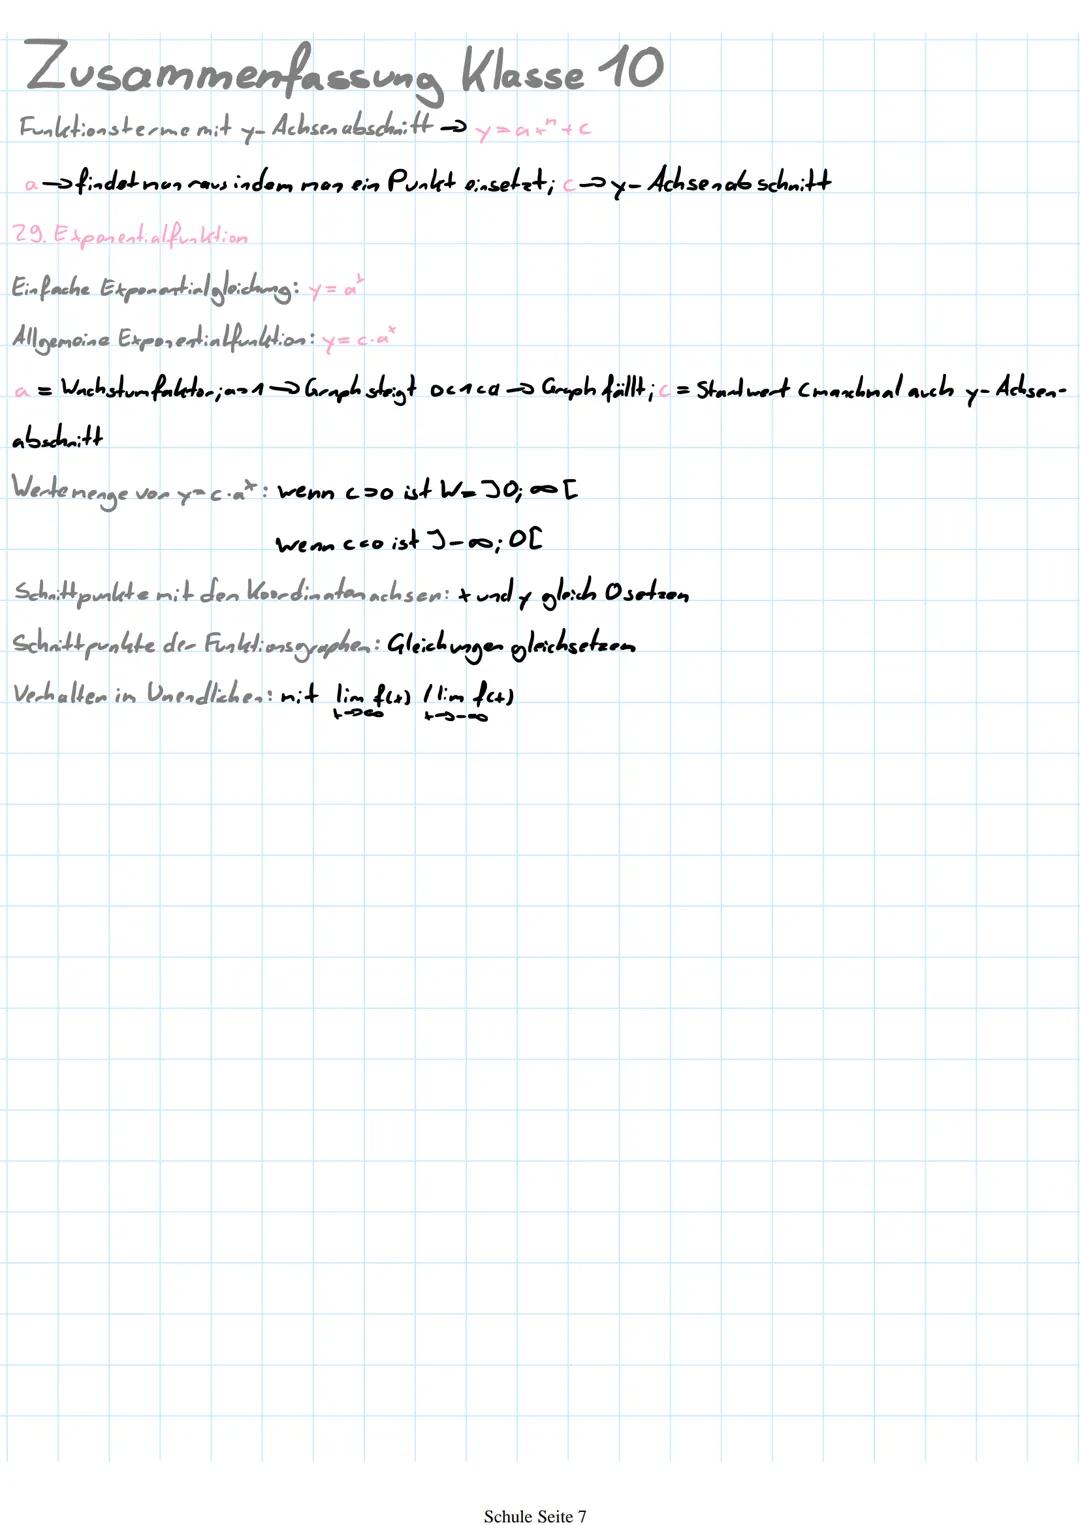 Zusammenfassung Klasse 10
Funktionsterme mit y-Achsenabschnitt → y=ax^n+c
a→findet man raus indem man ein Punkt einsetzt; c→y-Achsenabschnitt
29. Exponentialfunktion
Einfache Exponentialgleichung: y=a^x
Allgemeine Exponentialfunktion: y=c·a^x
a = Wachstumfaktor; a>1→Graph steigt 0<1<a→Graph fällt; c = Startwert (manchmal auch y-Achsen-
abschnitt
Wertemenge von y=c·a^x: wenn c>0 ist W=]0;∞[
wenn c<0 ist ]-∞;0[
Schnittpunkte mit den Koordinatenachsen: x und y gleich 0 setzen
Schnittpunkte der Funktionsgraphen: Gleichungen gleichsetzen
Verhalten im Unendlichen: mit lim f(x) / lim f(x)
x→∞ x→-∞
Schule Seite 7